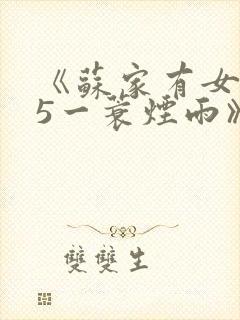 《蘇家有女
5一蓑煙雨》
雙雙生